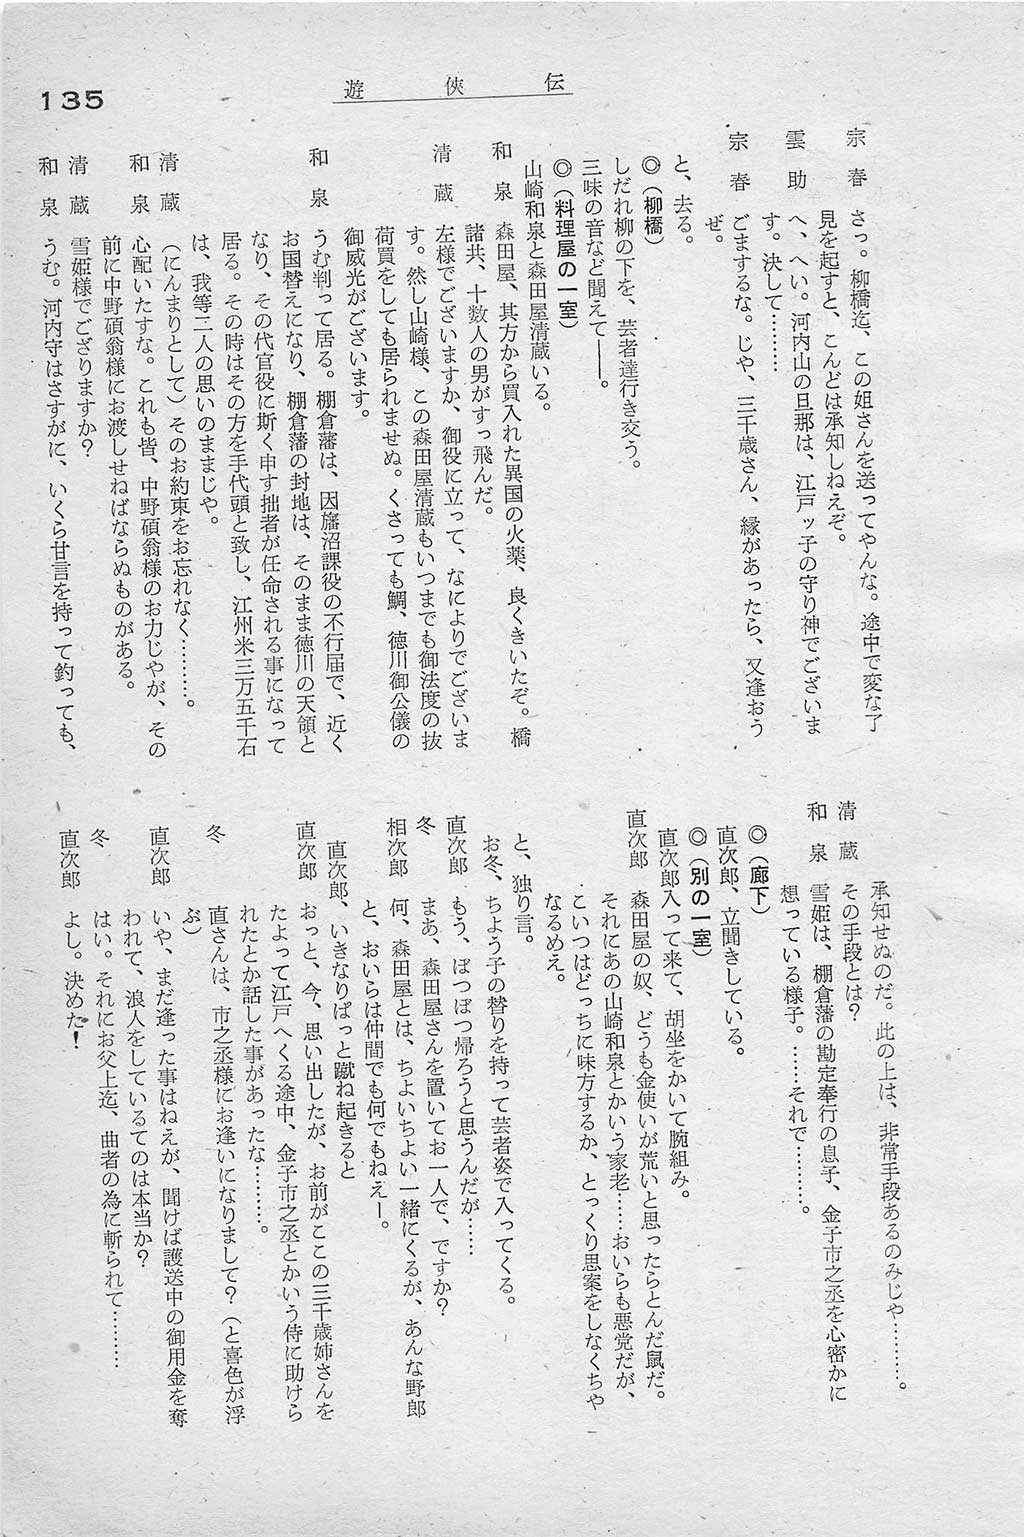 135
遊俠伝
宗春　さっ。柳橋迄、この姐さんを送ってやんな。途中で変な了
見を起すと、こんどは承知しねえぞ。
雲助　へ、へい。河内山の旦那は、江戸ッ子の守り神でございま
す。決して………
宗春　ごまするな。じゃ、三千歳さん、縁があったら、又逢おう
ぜ。
と、去る。
◎（柳橋）
しだれ柳の下を、芸者達行き交う。
三味の音など聞えて――。
◎（料理屋の一室）
山崎和泉と森田屋清蔵いる。
和泉　森田屋、其方から買入れた異国の火薬、良くきいたぞ。橋
諸共、十数人の男がすっ飛んだ。
清蔵　左様でございますか、御役に立って、なによりでございま
す。然し山崎様、この森田屋清蔵もいつまでも御法度の抜
荷買をしても居られませぬ。くさっても鯛、徳川御公儀の
御威光がございます。
和泉　うむ判って居る。棚倉藩は、因旛沼課役の不行届で、近く
お国替えになり、棚倉藩の封地は、そのまま徳川の天領と
なり、その代官役に斯く申す拙者が任命される事になって
居る。その時はその方を手代頭と致し、江州米三万五千石
は、我等二人の思いのままじゃ。
清蔵　（にんまりとして）そのお約束をお忘れなく………。
和泉　心配いたすな。これも皆、中野碩翁様のお力じゃが、その
前に中野碩翁様にお渡しせねばならぬものがある。
清蔵　雪姫様でござりますか？
和泉　うむ。河内守はさすがに、いくら甘言を持って釣っても、
承知せぬのだ。此の上は、非常手段あるのみじゃ………。
清蔵　その手段とは？
和泉　雪姫は、棚倉藩の勘定奉行の息子、金子市之丞を心密かに
想っている様子。……それで………。
◎（廊下）
直次郎、立聞きしている。
◎（別の一室）
直次郎入って来て、胡坐をかいて腕組み。
直次郎　森田屋の奴、どうも金使いが荒いと思ったらとんだ鼠だ。
それにあの山崎和泉とかいう家老……おいらも悪党だが、
こいつはどっちに味方するか、とっくり思案をしなくちゃ
なるめえ。
と、独り言。
お冬、ちよう子の替りを持って芸者姿で入ってくる。
直次郎　もう、ぼつぼつ帰ろうと思うんだが……
冬　まあ、森田屋さんを置いてお一人で、ですか？
相次郎　何、森田屋とは、ちよいちよい一緒にくるが、あんな野郎
と、おいらは仲間でも何でもねえー。
直次郎、いきなりぱっと蹴ね起きると
直次郎　おっと、今、思い出したが、お前がここの三千歳姉さんを
たよって江戸へくる途中、金子市之丞とかいう侍に助けら
れたとか話した事があったな………。
冬　直さんは、市之丞様にお逢いになりまして？（と喜色が浮
ぶ）
直次郎　いや、まだ逢った事はねえが、聞けば護送中の御用金を奪
われて、浪人をしているてのは本当か？
冬　はい。それにお父上迄、曲者の為に斬られて………
直次郎　よし。決めた！